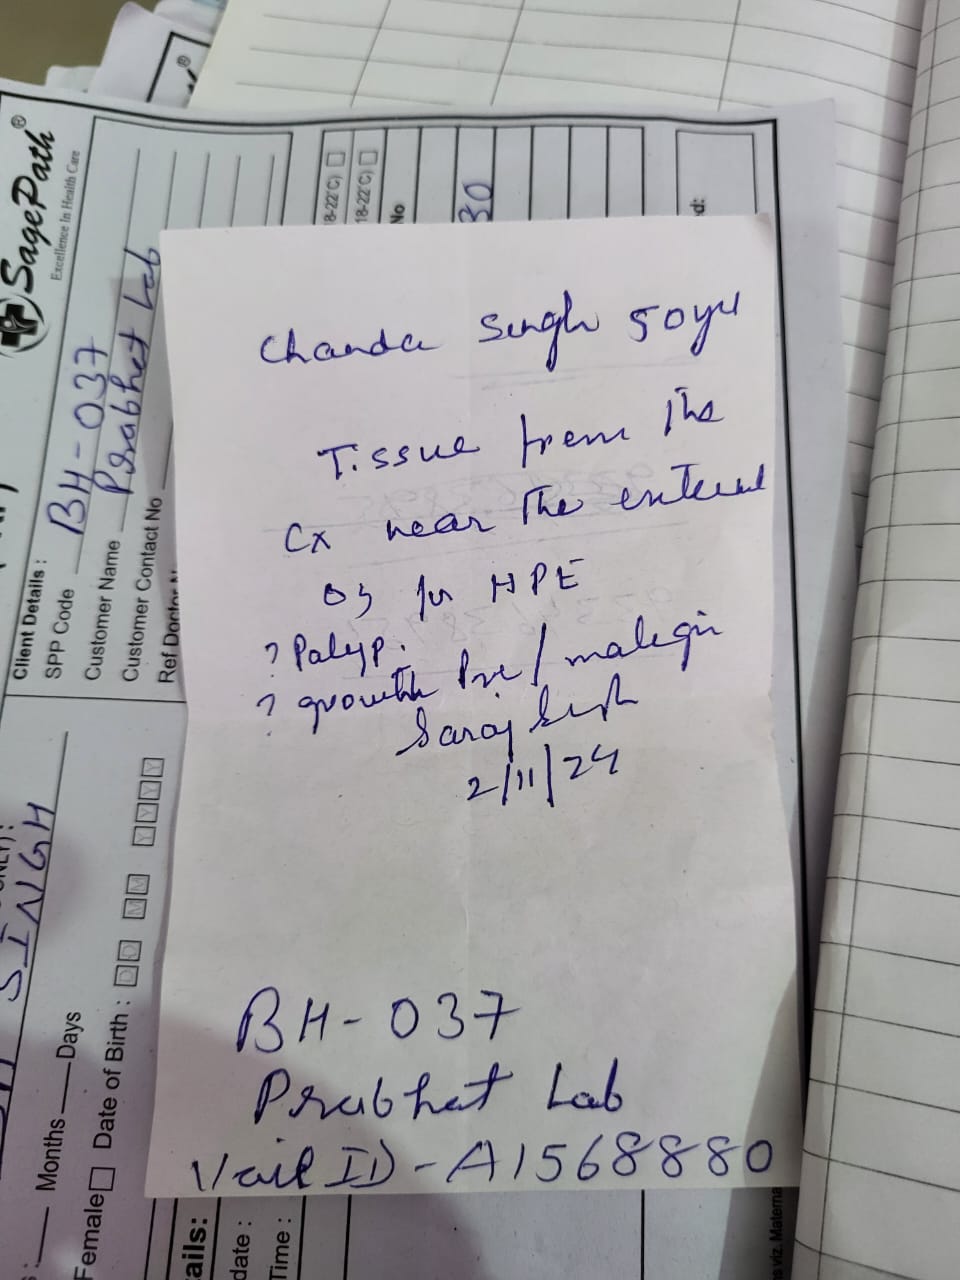 Chanda Singh 50yr
Tissue from the
Cx near the external
os for HPE
? Palyp.
? growth Pre/malegin
Saroj Singh
2/11/24
BH-037
Prabhat Lab
Vail ID-A1568880
SagePath®
Excellence In Health Care
Client Details :
SPP Code BH-037
Customer Name Prabhat Lab
Customer Contact No
Ref Doctor
18-22°C)
18-22°C)
No
80
SINGH
Months Days
Female Date of Birth : DD MM YYYY
ails:
date :
Time :
s viz. Materna